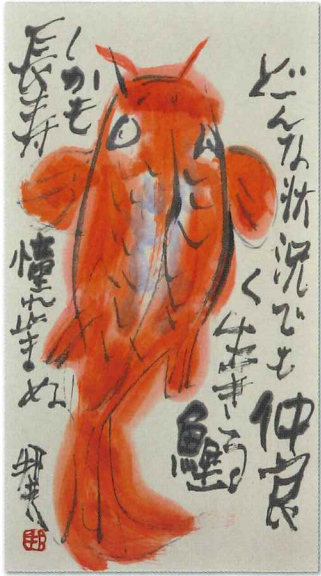 どんな状況でも
仲良
く生きる
鯉
しかも
長寿
憧れ止まぬ